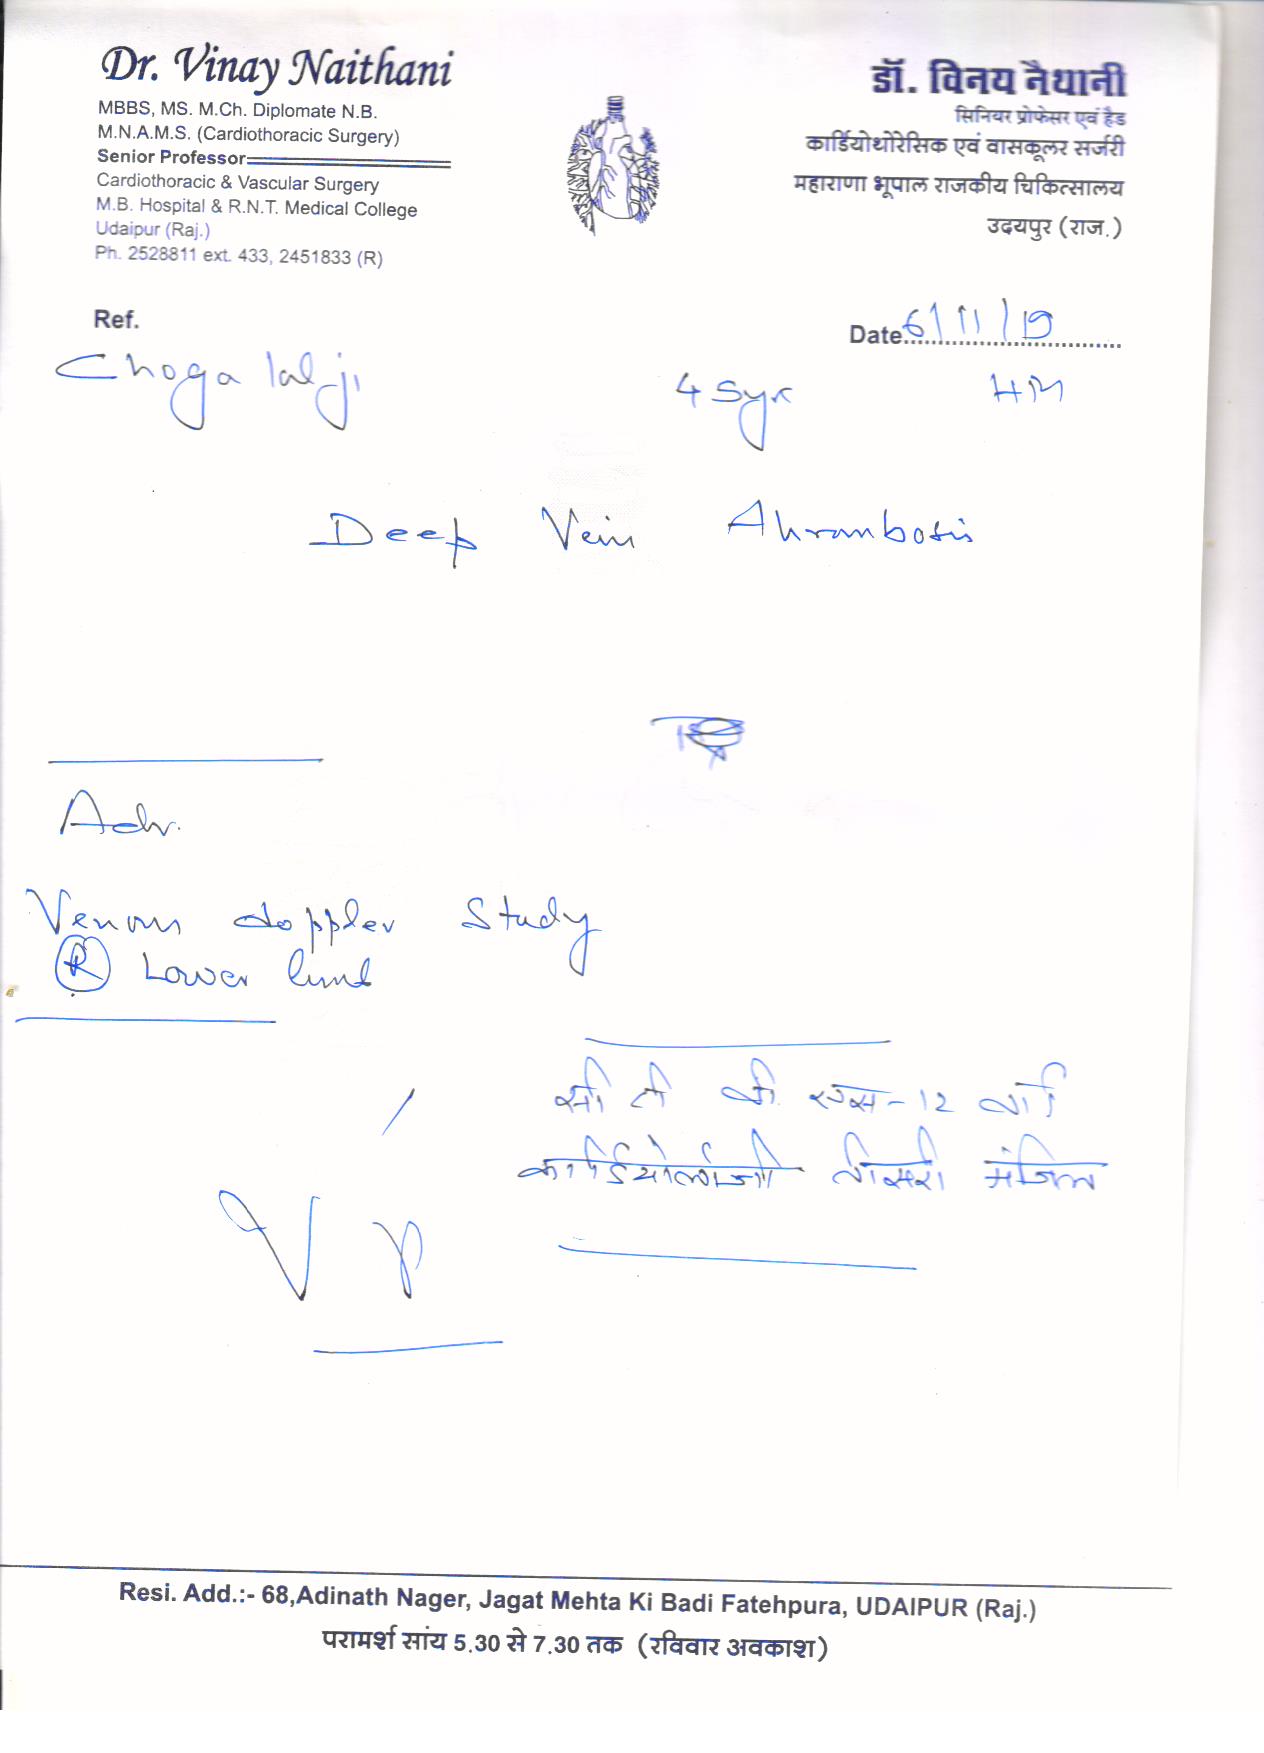 Dr. Vinay Naithani
MBBS, MS. M.Ch. Diplomate N.B.
M.N.A.M.S. (Cardiothoracic Surgery)
Senior Professor
Cardiothoracic & Vascular Surgery
M.B. Hospital & R.N.T. Medical College
Udaipur (Raj.)
Ph. 2528811 ext. 433, 2451833 (R)
डॉ. विनय नैथानी
सिनियर प्रोफेसर एवं हैड
कार्डियोथोरेसिक एवं वासकूलर सर्जरी
महाराणा भूपाल राजकीय चिकित्सालय
उदयपुर (राज.)
Ref.
Date 6/11/19
Chogalalji 45yr HM
Deep Vein Thrombosis
Adv.
Venous doppler Study
R Lower limb
सी टी वी एस-12 वार्ड
कार्डियोलॉजी तीसरी मंजिल
Resi. Add.:- 68,Adinath Nager, Jagat Mehta Ki Badi Fatehpura, UDAIPUR (Raj.)
परामर्श सांय 5.30 से 7.30 तक (रविवार अवकाश)